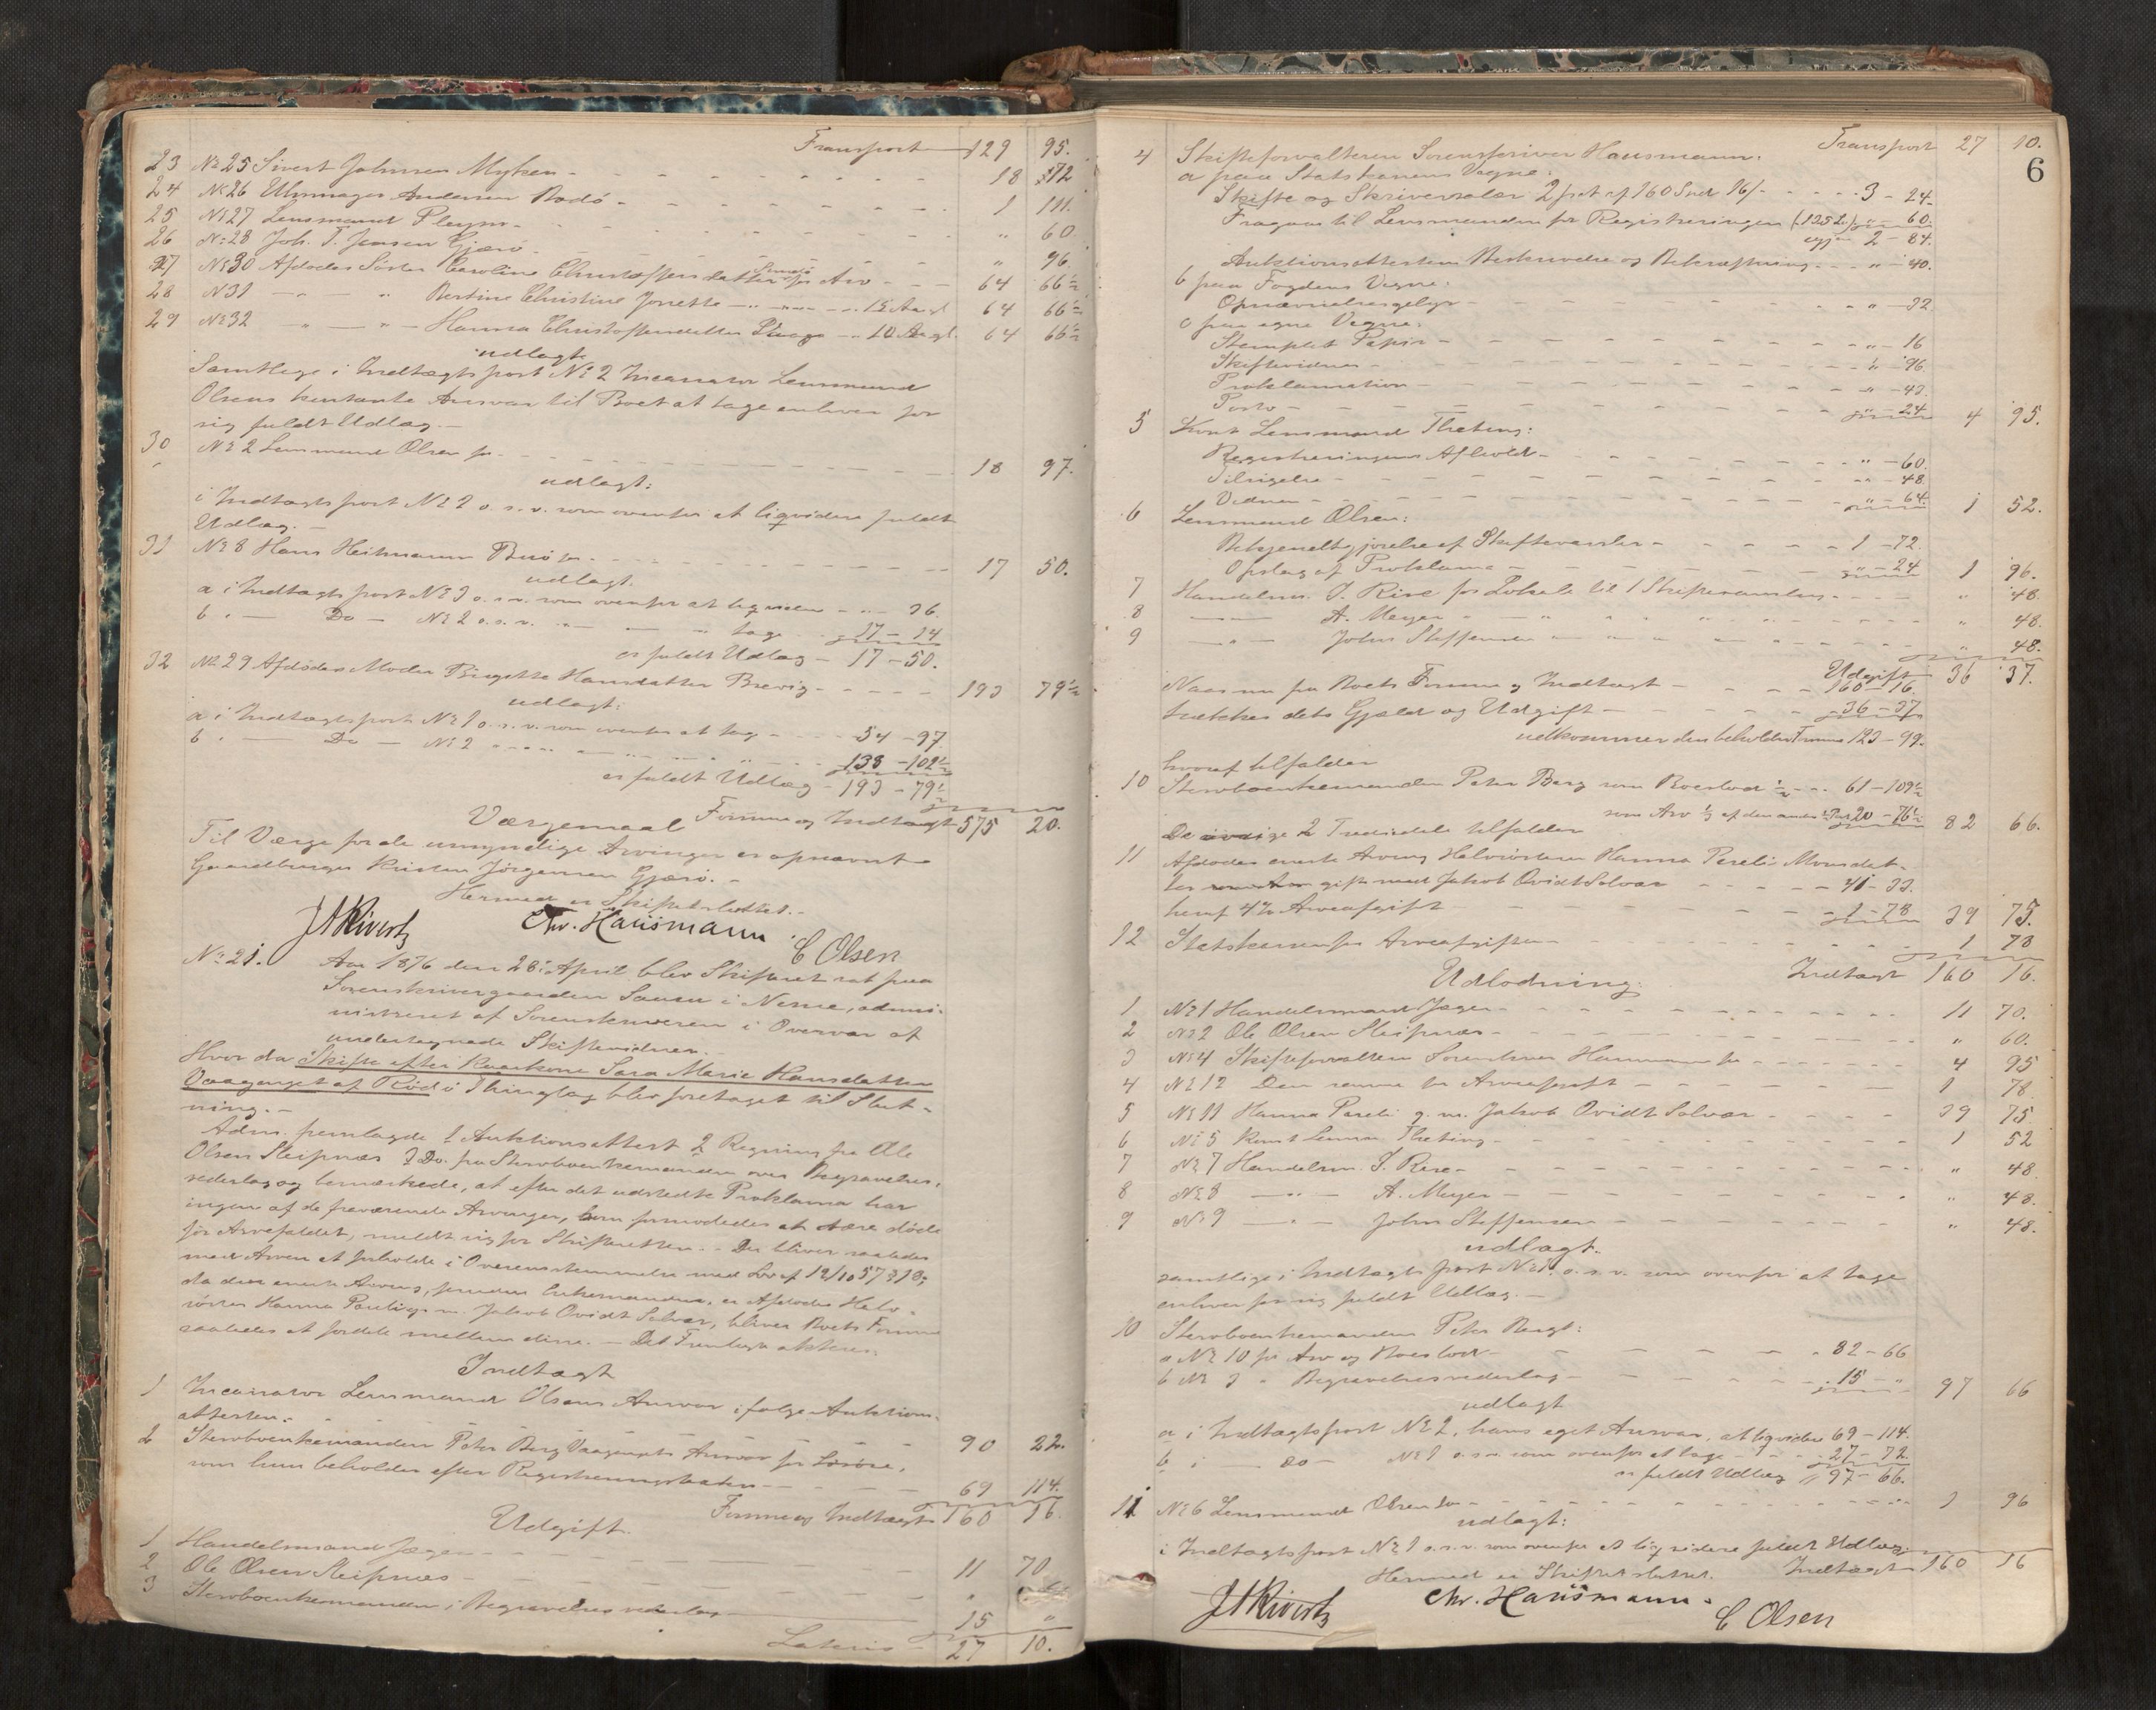 Transport 129 95.
23 No 25 Sivert Johnsen Myken - 18 72
24 No 26 Andersen Rodö - 1 111.
25 No 27 Lensmand Pleym - " 60
26 No 28 Joh. T. Jensen Gjærö - " 96
27 No 30 Afdødes Søster Caroline Christoffersdatter for Arv - 64 66½
28 No 31 — " — " Bertine Christine Jorette — " — 64 66½
29 No 32 — " — " — Hanna Christoffersdatter — " 64 66½
udlagt.
Samtlige i Indtægtspost No 2 Incassator Lensmand
Olsens kontante Ansvar til Boet at tage enhver for
sig fuldt Udlæg. —
30 No 2 Lensmand Olsen for - 18 97.
udlagt:
i Indtægtspost No 2 o. s. v. som ovenfor at liqvidere fuldt
Udlæg. —
31 No 8 Hans Heitmann Buö for - 17 50.
udlagt.
a i Indtægtspost No 3 o. s. v. som ovenfor at liqvidere - " - 36.
b " — Do — No 2 o. s. v. " — " tage 17 - 14
er fuldt Udlæg - 17 - 50.
32 No 29 Afdødes Moder Birgitte Hansdatter Brevig - 193 79½
udlagt:
a i Indtægtspost No 1 o. s. v. som ovenfor at tage - 54 - 97.
b " — Do — No 2 " 138 - 102½
er fuldt Udlæg - 193 - 79½
Formue og Indtægt 575 20.
Værgemaal
Til Værge for de umyndige Arvinger er opnævnt
Gaardbruger Kristen Jörgensen Gjærö. —
Hermed er Skiftet sluttet. —
JARivertz Chr. Hausmann C Olsen
No 21. Aar 1876 den 28 April blev Skifteret sat paa
Sorenskrivergaarden Sauen i Nesne, admi-
nistreret af Sorenskriveren i Overvær af
undertegnede Skiftevidner.
Hvor da Skifte efter Kvarkone Sara Marie Hansdatter
Vaagenget af Rödö Thinglag blev foretaget til Slut-
ning. —
Adm. fremlagde 1 Auktionsattest 2 Regning fra Ole
Olsen Sleipnæs 3 Do. fra Stervboenkemanden over Begravelses-
vederlag og bemærkede, at efter det udstedte Proklama har
ingen af de fraværende Arvinger, som formodedes at være døde
før Arvefaldet, meldt sig for Skifteretten. - Der bliver saaledes
med Arven at forholde i Overensstemmelse med Lov af 12/10 57 § 18;
da den eneste Arving, foruden Enkemanden, er Afdødes Halv-
søster Hanna Pareli g. m. Jakob Ovidt Solvær, bliver Boets Formue
saaledes at fordele mellem disse. — Det Fremlagte aktes.
Indtægt
1 Incassator Lensmand Olsens Ansvar ifølge Auktions-
attesten - 90 22.
2 Stervboenkemanden Peter Berg Vaagengets Ansvar for Løsöre,
som han beholder efter Registreringstaxten - 69 114.
Formue og Indtægt 160 16.
Udgift.
1 Handelsmand Jæger - 11 70
2 Ole Olsen Sleipnæs -
3 Stervboenkemanden i Begravelsesvederlag 15 "
Lateris 27 10.
6
Transport 27 10.
4 Skifteforvalteren Sorenskriver Hausmann:
a paa Statskassens Vegne:
Skifte og Skriversalær 2 pct af 160 Spd 16/- 3 - 24
Fragaar til Lensmanden for Registreringen (1252) " - 60.
igjen 2 - 84.
Auktionsattestens Beskrivelse og Bekræftning - " - 40.
b paa Fogdens Vegne:
Opnævnelsesgebyr - " - 32
c paa egne Vegne:
Stemplet Papir - " - 16
Skiftevidner - " - 96
Proklamation - " - 47.
Porto - " - 24 4 95.
5 Konst Lensmand Theting:
Registreringens Afholdt - " - 60.
Tilsigelse - " - 48.
Vidner - " - 64. 1 52.
6 Lensmand Olsen:
Bekjendtgjørelse af Skiftesamling - 1 - 72.
Opslag af Proklama - " - 24 1 96.
7 Handelsm. J. Rise for Lokale til 1 Skiftesamling - " 48.
8 — " — A. Meyer " 48.
9 — " — John Steffensen " 48.
Udgift 36 37.
Naar nu fra Boets Formue og Indtægt - 160 - 16.
trækkes dets Gjæld og Udgift - 36 - 37
udkommer den beholdne Formue 123 - 99.
hvoraf tilfalder
10 Stervboenkemanden Peter Berg som Boeslod ½ - 61 - 109½
som Arv ⅓ af den anden Part 20 - 76½ 82 66.
De övrige 2 Trediedele tilfalder
11 Afdødes eneste Arving Halvsösteren Hanna Pareli Monsdat-
ter gift med Jakob Ovidt Solvær - 41 - 33.
heraf 4% Arveafgift - 1 - 78 39 75.
12 Statskassen for Arveafgiften - 1 78
Indtægt 160 16.
Udlodning.
1 No 1 Handelsmand Jæger - 11 70.
2 No 2 Ole Olsen Sleipnæs - " 60.
3 No 4 Skifteforvalteren Sorenskriver Hausmann for - 4 95
4 No 12 Den samme for Arveafgift - 1 78.
5 No 11 Hanna Pareli g. m. Jakob Ovidt Solvær - 39 75
6 No 5 Konst Lensm. Theting - 1 52
7 No 7 Handelsm. J. Rise - " 48
8 No 8 — " — A. Meyer - " 48.
9 No 9 — " — John Steffensen - " 48.
udlagt.
samtlige i Indtægtspost No 1. o. s. v. som ovenfor at tage
enhver for sig fuldt Udlæg. —
10 Stervboenkemanden Peter Berg:
a No 10 for Arv og Boeslod - 82 - 66
b No 3 " Begravelsesvederlag - 15 - " 97 66
udlagt
a i Indtægtspost No 2, hans eget Ansvar, at liqvidere 69 - 114.
b i — do — No 1 o. s. v. som ovenfor at tage - 27 - 72.
er fuldt Udlæg 97 - 66.
11 No 6 Lensmand Olsen for - 1 96
udlagt:
i Indtægtspost No 1 o. s. v. som ovenfor at liqvidere fuldt Udlæg.
Indtægt 160 16
Hermed er Skiftet sluttet.
JARivertz Chr. Hausmann. C Olsen